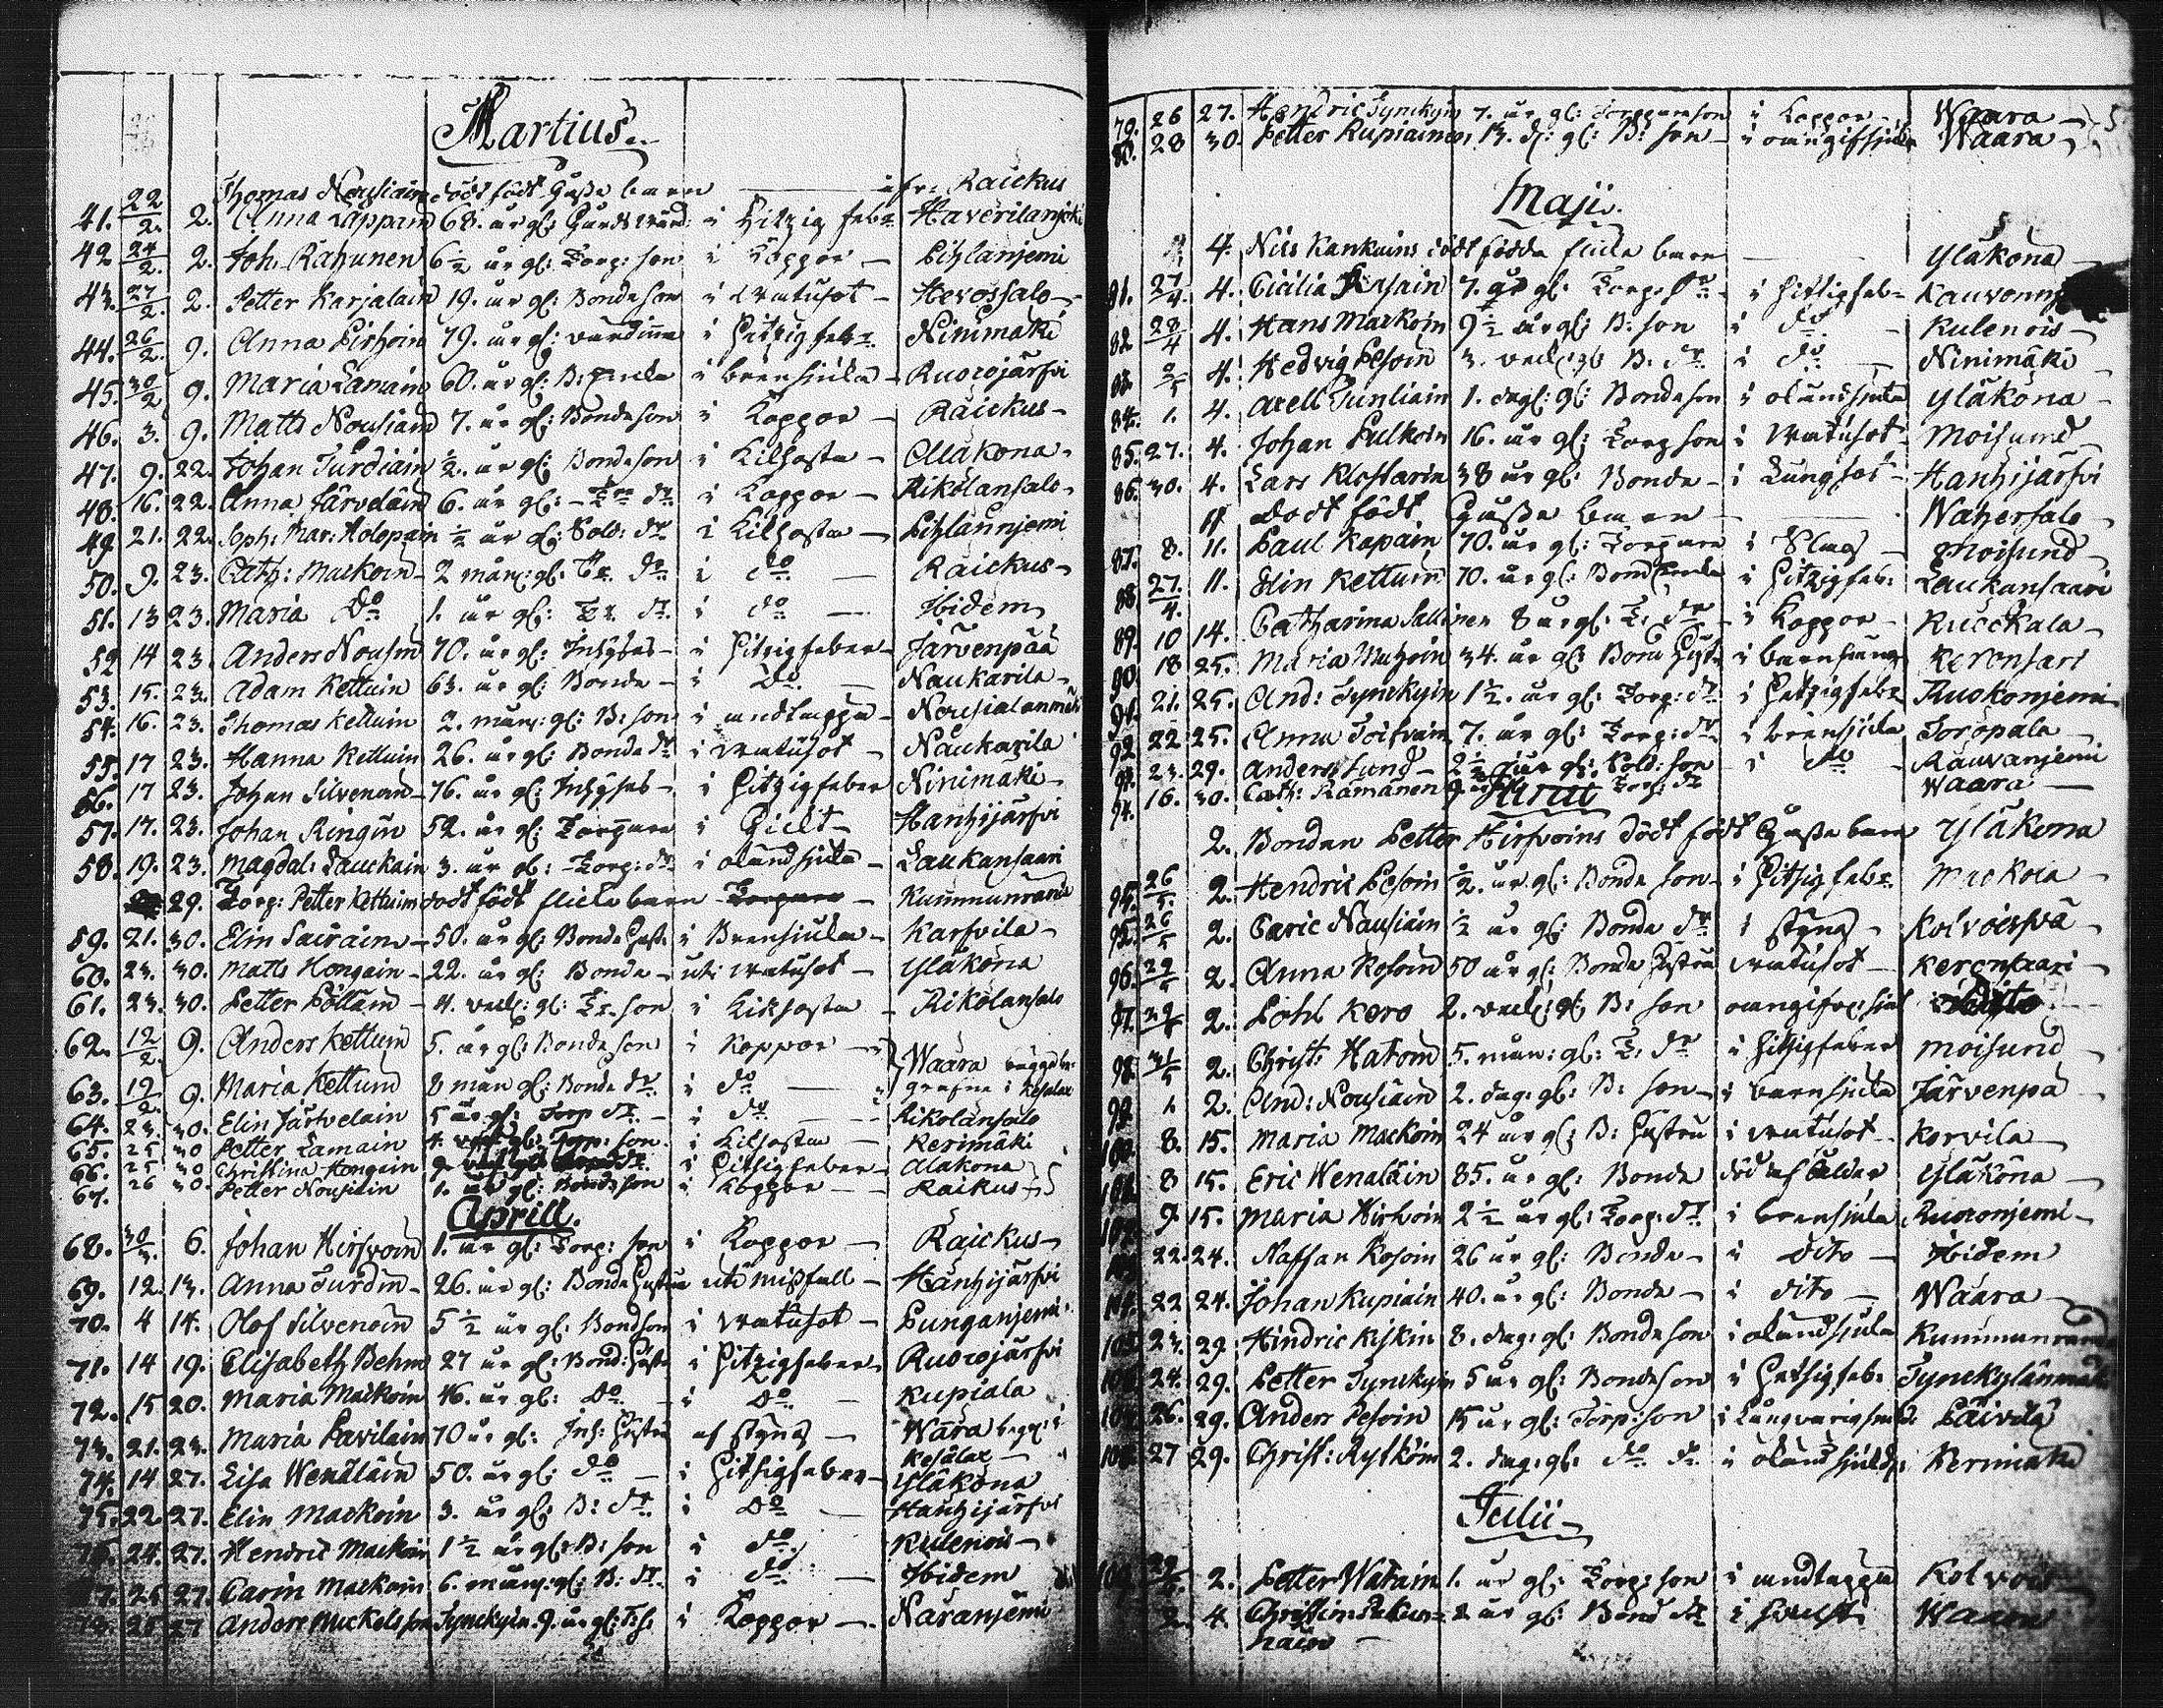 Martius.
Thomas Nousiain dödt födt Gåsse barn ifr. Raickus
41. 22/2. 2. Anna Lappain 68. år gl: i Hitzig feb: Haverilanjoki
42. 24/2. 2. Joh. Rahunen 6 1/2 år gl: Torp: son i Koppor Pihlanjemi
43. 27/2. 2. Petter Karjalain 19. år gl: Bonde son i Watusot Hevossalo
44. 26/2. 9. Anna Pirhoin 79. år gl: värdinna i Hitzig feb: Ninimäki
45. 30/2 9. Maria Lamain 60. år gl: B: Enka i brensiuka Ruocojärfvi
46. 3. 9. Matts Nousiain 7. år gl: Bonde son i Koppor Raickus
47. 9. 22. Johan Turdiain 1/2. år gl: Bonde son i Kikhosta Alakona
48. 16. 22. Anna Järveläin 6. år gl: Tr: dr. i Koppor Rikolansalo
49. 21. 22. Soph: Mar: Holopain 1/2 år gl: Sold: dr. i Kikhosta Pihlannjemi
50. 9. 23. Cath: Mackoin 2 mån: gl: Tr. dr. i do Raickus
51. 13 23. Maria Do 1. år gl: Tr. dr. i do Ibidem
52 14 23. Anders Nousin 70. år gl: Inhyses i Hitzig feber Järvenpää
53. 15. 23. Adam Kettuin 63. år gl: Bonde i Do. Naukarila
54. 16. 23. Thomas Kettuin 2. mån: gl: B: son i andtäppa Nousialanmäki
55. 17 23. Hanna Kettuin 26. år gl: Bonde dr i Watusot Naukarila
56. 17 23. Johan Silvenoin 76. år gl: Inhyses i Hitzig feber Ninimäki
57. 17. 23. Johan Ringin 52. år gl: Torpare i Gickt Hanhijärfvi
58. 19. 23. Magdal: Lauckain 3. år gl: Torp: dr i okändsiuka Laukansaari
29. Torp: Petter Kettuin dodt födt flicke barn Kummunranda
59. 21. 30. Elin Sairain 50. år gl: Bonde Hust: i Brensiuka Karfvila
60. 23. 30. Matts Hongain 22. år gl: Bonde uti Watusot Yläkona
61. 23. 30. Petter Pöllain 4. veck: gl: Tr. son i Kikhosta Rikolansalo
62. 12/2. 9. Anders Kettuin 5. år gl: Bonde son i Koppor Waara begge be-
63. 12/2. 9. Maria Kettuin 8 mån gl: Bonde dr. i do grafne i Kesälax
64. 23. 30. Elin Järfvelain 5 år gl: Torp dr i do Rikolansalo
65. 25 30 Petter Lamain 4. veck gl: Torp: son i Kikhosta Kerimäki
66. 25 30 Christina Hongain i Hitsigfeber Alakona
67. 26 30. Petter Nousiain 1. år gl: Bonde son i Koppor Raikus
Aprill.
68. 30/3. 6. Johan Hirfvoin 1. år gl: Torp: son i Koppor Raickus
69. 12. 13. Anna Turdin 26. år gl: Bonde Hustru uti Missfall Hanhijärfvi
70. 4 14. Olof Silvenoin 5 1/2 år gl: Bondson i Watusot Punganjemi
71. 14 19. Elisabeth Behm 27 år gl: Bond: Hust: i Hitzigfeber Ruocojärfvi
72. 15 20. Maria Mackoin 46. år gl: Do i Do Kupiala
73. 21. 23. Maria Pavilain 70 år gl: Inh: Hustru af styng Waara begr: i
Kesälax
74. 14 27. Lisa Wendläin 50. år gl: do i Hitsigfeber Yläkona
75. 22 27. Elin Mackoin 3. år gl: B: dr. i Do Hanhijärfvi
76. 24. 27. Hendric Mackoin 1 1/2 år gl: B: son i do Kulenois
77. 25 27. Carin Mackoin 6. mån: gl: B: dr. i do Ibidem
78. 25 27 Anders Mickelsson Tynckyin 9. år gl: T: s: i Koppor Naranjemi
79. 26 27. Hendric Tynckyin 7. år gl: Torpareson i Koppor Waara
80. 28 30. Petter Kupiainen 13. d: gl: B: son Waara
Maji.
4. Nils Kankuins dödt födda flicke barn Yläkona
81. 27/4. 4. Cicilia 7. år gl: Torp: dr. i Hitsigfeb:
82 28/4 4. Hans Mackoin 9 1/2 år gl: B: son i do Kulenois
83. 2/5 4. Hedvig Pesoin 3. veck: gl: B: dr. i do Ninimäki
84. 1. 4. Axell Turtiain 1. dag: gl: Bonde son i okändsiuka Yläkona
85. 27. 4. Johan Pulkoin 16. år gl: Torp son i Watusot Moisund
86. 30. 4. Lars Klossarin 38 år gl: Bonde i Lungsot Hanhijärfvi
11 dodt födt Gåsse barn Wahersalo
87. 8. 11. Paul Kapain 70. år gl: Torpare i Slag Moisund
88. 27/4. 11. Elin Kettuin 70. år gl: Bond Enka i Hitzigfeb: Laukansaari
89. 10 14. Catharina Sallinen 8 år gl: T. dr i Koppor Ruockala
90. 18 25. Maria Muhoin 34. år gl: Bond Hust: i barnsäng Keronsari
91. 21. 25. And: Tynckyin 1 1/2. år gl: Torp: dr i Hetzigfebr Ruokonjemi
92. 22 25. Anna Toifvain 7. år gl: Torp: dr. i brensiuka Toropala
93. 23. 29. Anders Lund 2 1/2 år gl: Sold: son i do Rauvanjemi
94. 16. 30. Cath: Ramanen 9 Torp: dr Waara
2. Bonden Petter Hirfvoins dödt födt Gåsse barn Yläkona
26/5. 2. Hendric Pesoin 1/2. år gl: Bonde son i Hitsig feb:
95. 26/5 2. Caric Nausiain 1/2 år gl: Bonde dr i styng
96. 29/5 2. Anna Kosoin 50 år gl: Bonde Hustru Watusot Keronsaari
97. 2. Pohl Koro 2. veck: gl: B: son Dito
98. 31/5 2. Christ: Hatoin 5. mån: gl: T: dr i Hitsigfeber Moisund
99. 1. 2. And: Nousiain 2. dag: gl: B: son i barnsiuka Järvenpä
100. 8. 15. Maria Mackoin 24 år gl: B: Hustru i Watusot Korvila
101. 8 15. Eric Wenaläin 85. år gl: Bonde död af ålder Yläkona
102. 9. 15. Maria Hirfvoin 2 1/2 år gl: Torp: dr i brensiuka Ruoconjemi
22. 24. Staffan Kosoin 26 år gl: Bonde i dito Ibidem
104. 22 24. Johan Kupiain 40. år gl: Bonde i dito Waara
105. 23. 29. Hindric Kiskin 8. dag: gl: Bonde son i okändsjuka Kummunranda
106. 24. 29. Petter Tynckyin 5 år gl: Bonde son i Hetsigfeb: Tynckylänmäki
107. 26. 29. Anders Pesoin 15 år gl: Torp: son Päivilä
108. 27 29. Christ: Rytköin 2. dag: gl: do dr i okänd sjukd: Kerimäki
Julii
109. 2. Petter Watain 1. år gl: Torp: son i andtäppa
2. 4. år gl: Bond dr i Waara